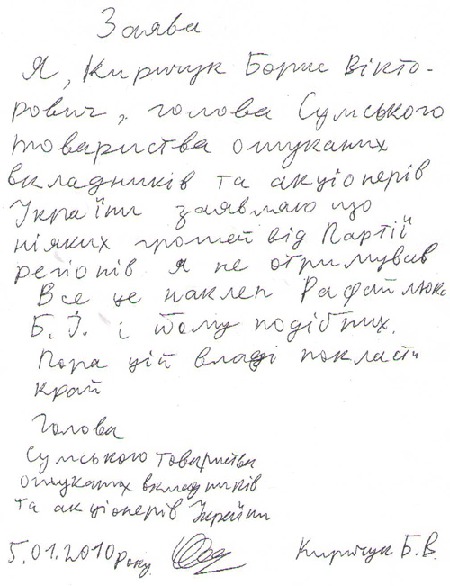 Заява
Я, Киричук Борис Вікто-
рович, голова Сумського
товариства ошуканих
вкладників та акціонерів
України заявляю що
ніяких грошей від Партії
регіонів я не отримував
Все це наклеп
Б. Й. і йому подібних.
Пора цій владі покласти
край
Голова
Сумського товариства
ошуканих вкладників
та акціонерів України
5.01.2010 року. Киричук Б. В.